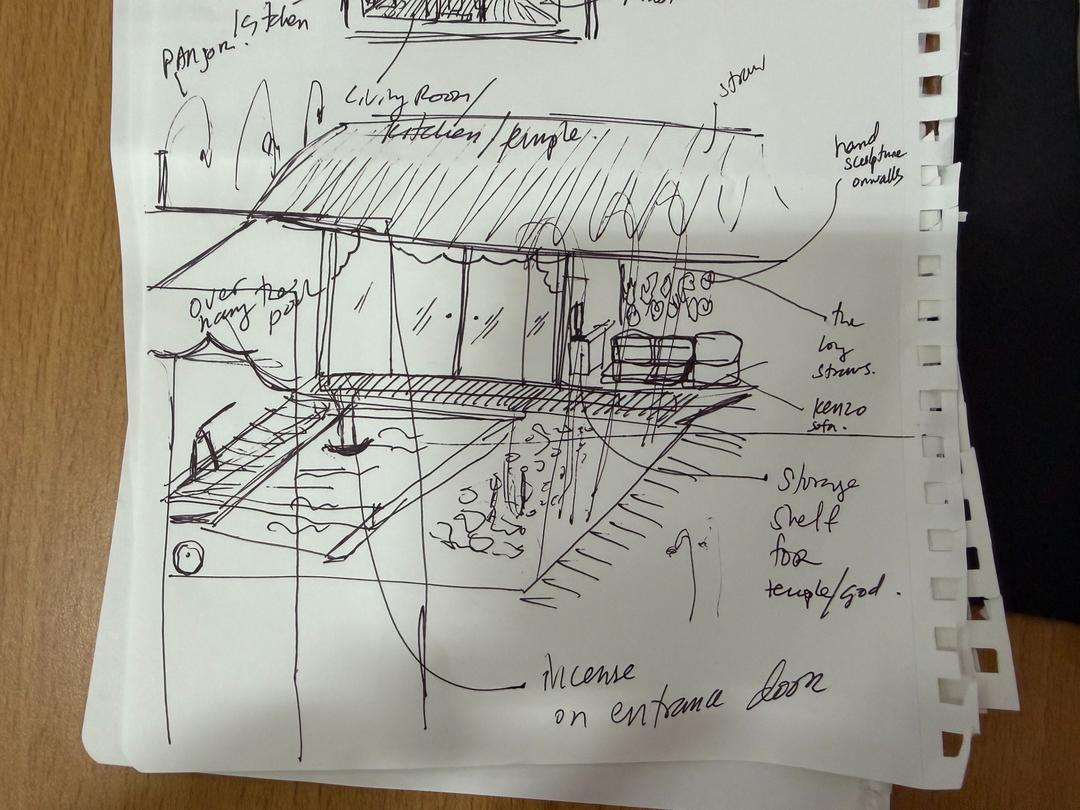 Kitchen
PANjor.
Living Room/
kitchen/temple.
straw
hand
sculpture
onwalls
over
hang
pool
the
long
straws.
Kenzo
sofa.
Storage
shelf
for
temple/god.
incense
on entrance door